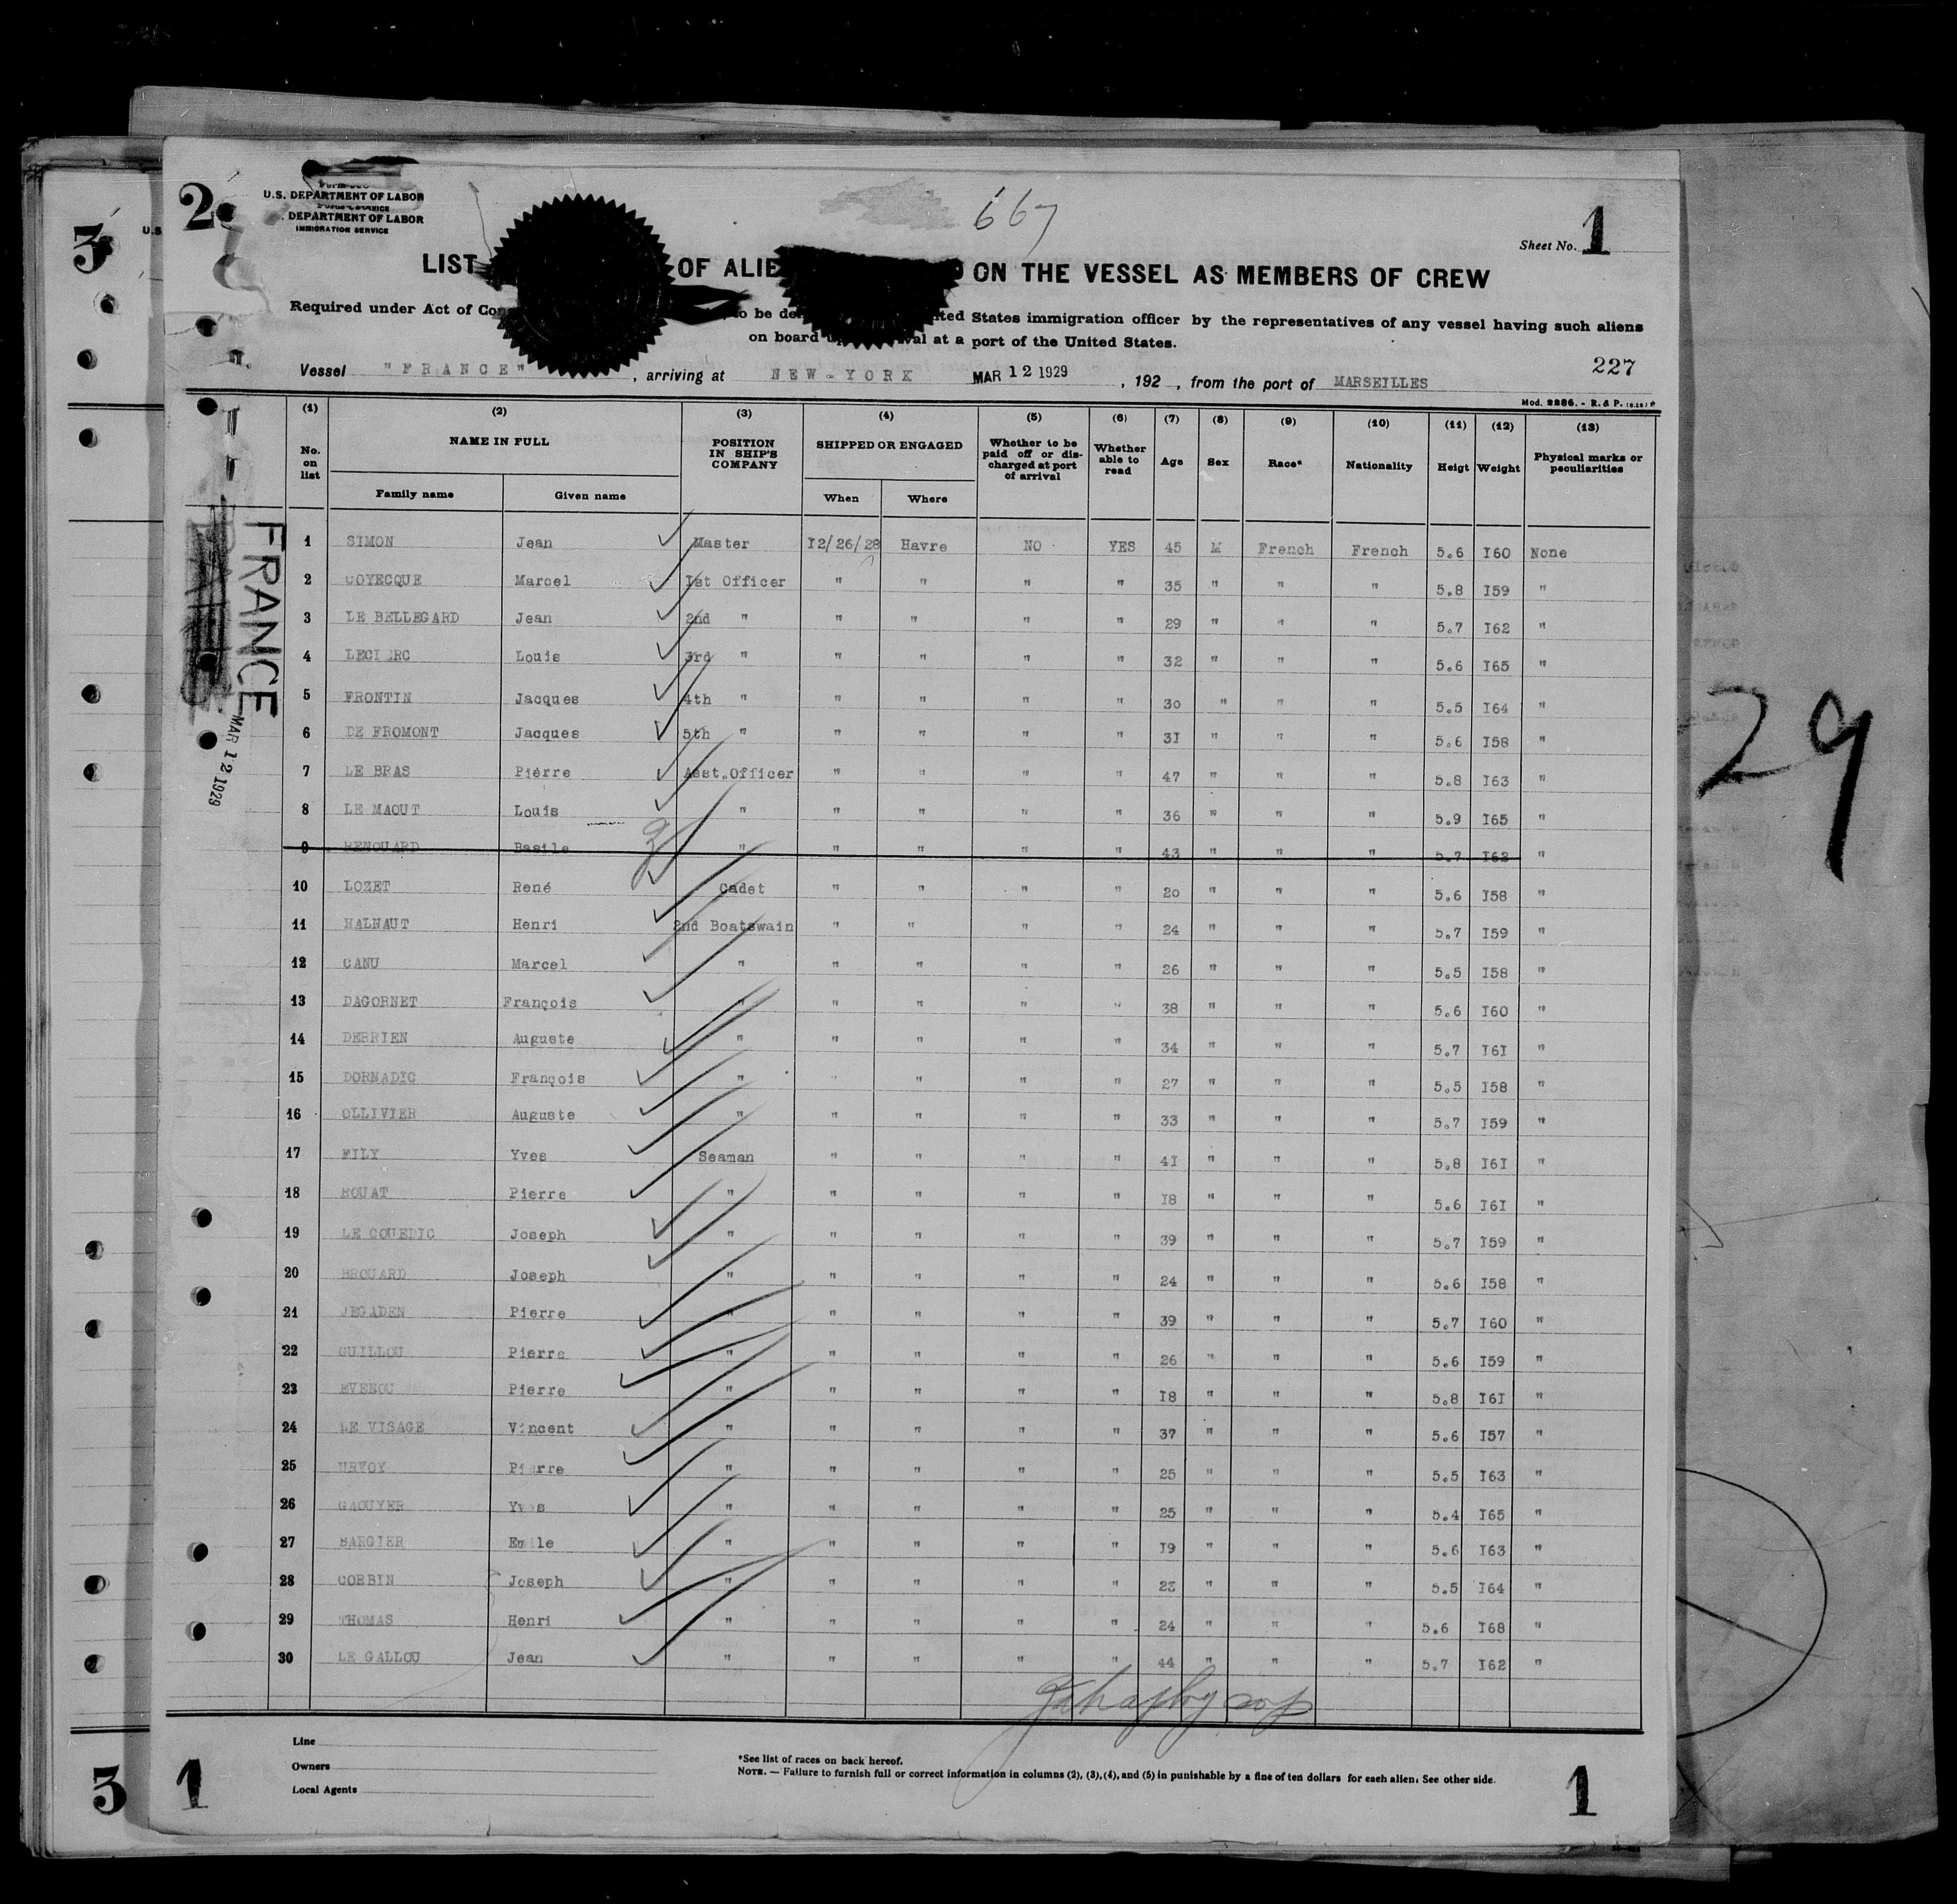 2
3
1
FORM 689
U.S. DEPARTMENT OF LABOR
DEPARTMENT OF LABOR
IMMIGRATION SERVICE
667
Sheet No. 1
LIST OF ALIE ON THE VESSEL AS MEMBERS OF CREW
Required under Act of Con to be de ted States immigration officer by the representatives of any vessel having such aliens
on board up val at a port of the United States.
227
Vessel "FRANCE", arriving at NEW-YORK MAR 12 1929, 192 , from the port of MARSEILLES
Mod. 2286. - R. & P.
(1) (2) (3) (4) (5) (6) (7) (8) (9) (10) (11) (12) (13)
No. on list NAME IN FULL POSITION IN SHIP'S COMPANY SHIPPED OR ENGAGED Whether to be paid off or discharged at port of arrival Whether able to read Age Sex Race* Nationality Heigt Weight Physical marks or peculiarities
Family name Given name When Where
1 SIMON Jean Master I2/26/28 Havre NO YES 45 M French French 5.6 I60 None
2 COYECQUE Marcel Ist Officer " " " " 35 " " " 5.8 I59 "
3 LE BELLEGARD Jean 2nd " " " " " 29 " " " 5.7 I62 "
4 LECLERC Louis 3rd " " " " " 32 " " " 5.6 I65 "
5 FRONTIN Jacques 4th " " " " " 30 " " " 5.5 I64 "
6 DE FROMONT Jacques 5th " " " " " 3I " " " 5.6 I58 "
7 LE BRAS Pierre Asst.Officer " " " " 47 " " " 5.8 I63 "
8 LE MAOUT Louis " " " " " 36 " " " 5.9 I65 "
9 RENOUARD Basile " " " " " 43 " " " 5.7 I62 "
10 LOZET René Cadet " " " " 20 " " " 5.6 I58 "
11 HALNAUT Henri 2nd Boatswain " " " " 24 " " " 5.7 I59 "
12 CANU Marcel " " " " " 26 " " " 5.5 I58 "
13 DAGORNET François " " " " " 38 " " " 5.6 I60 "
14 DERRIEN Auguste " " " " " 34 " " " 5.7 I6I "
15 DORNADIC François " " " " " 27 " " " 5.5 I58 "
16 OLLIVIER Auguste " " " " " 33 " " " 5.7 I59 "
17 FILY Yves Seaman " " " " 4I " " " 5.8 I6I "
18 ROUAT Pierre " " " " " I8 " " " 5.6 I6I "
19 LE COUEDIC Joseph " " " " " 39 " " " 5.7 I59 "
20 BROUARD Joseph " " " " " 24 " " " 5.6 I58 "
21 JEGADEN Pierre " " " " " 39 " " " 5.7 I60 "
22 GUILLOU Pierre " " " " " 26 " " " 5.6 I59 "
23 EVENOU Pierre " " " " " I8 " " " 5.8 I6I "
24 LE VISAGE Vincent " " " " " 37 " " " 5.6 I57 "
25 URVOY Pierre " " " " " 25 " " " 5.5 I63 "
26 GAOUYER Yves " " " " " 25 " " " 5.4 I65 "
27 BARGIER Emile " " " " " I9 " " " 5.6 I63 "
28 CORBIN Joseph " " " " " 23 " " " 5.5 I64 "
29 THOMAS Henri " " " " " 24 " " " 5.6 I68 "
30 LE GALLOU Jean " " " " " 44 " " " 5.7 I62 "
FRANCE
MAR 12 1929
29
Line
Owners
Local Agents
*See list of races on back hereof.
NOTE. — Failure to furnish full or correct information in columns (2), (3), (4), and (5) in punishable by a fine of ten dollars for each alien. See other side.
3
1
1